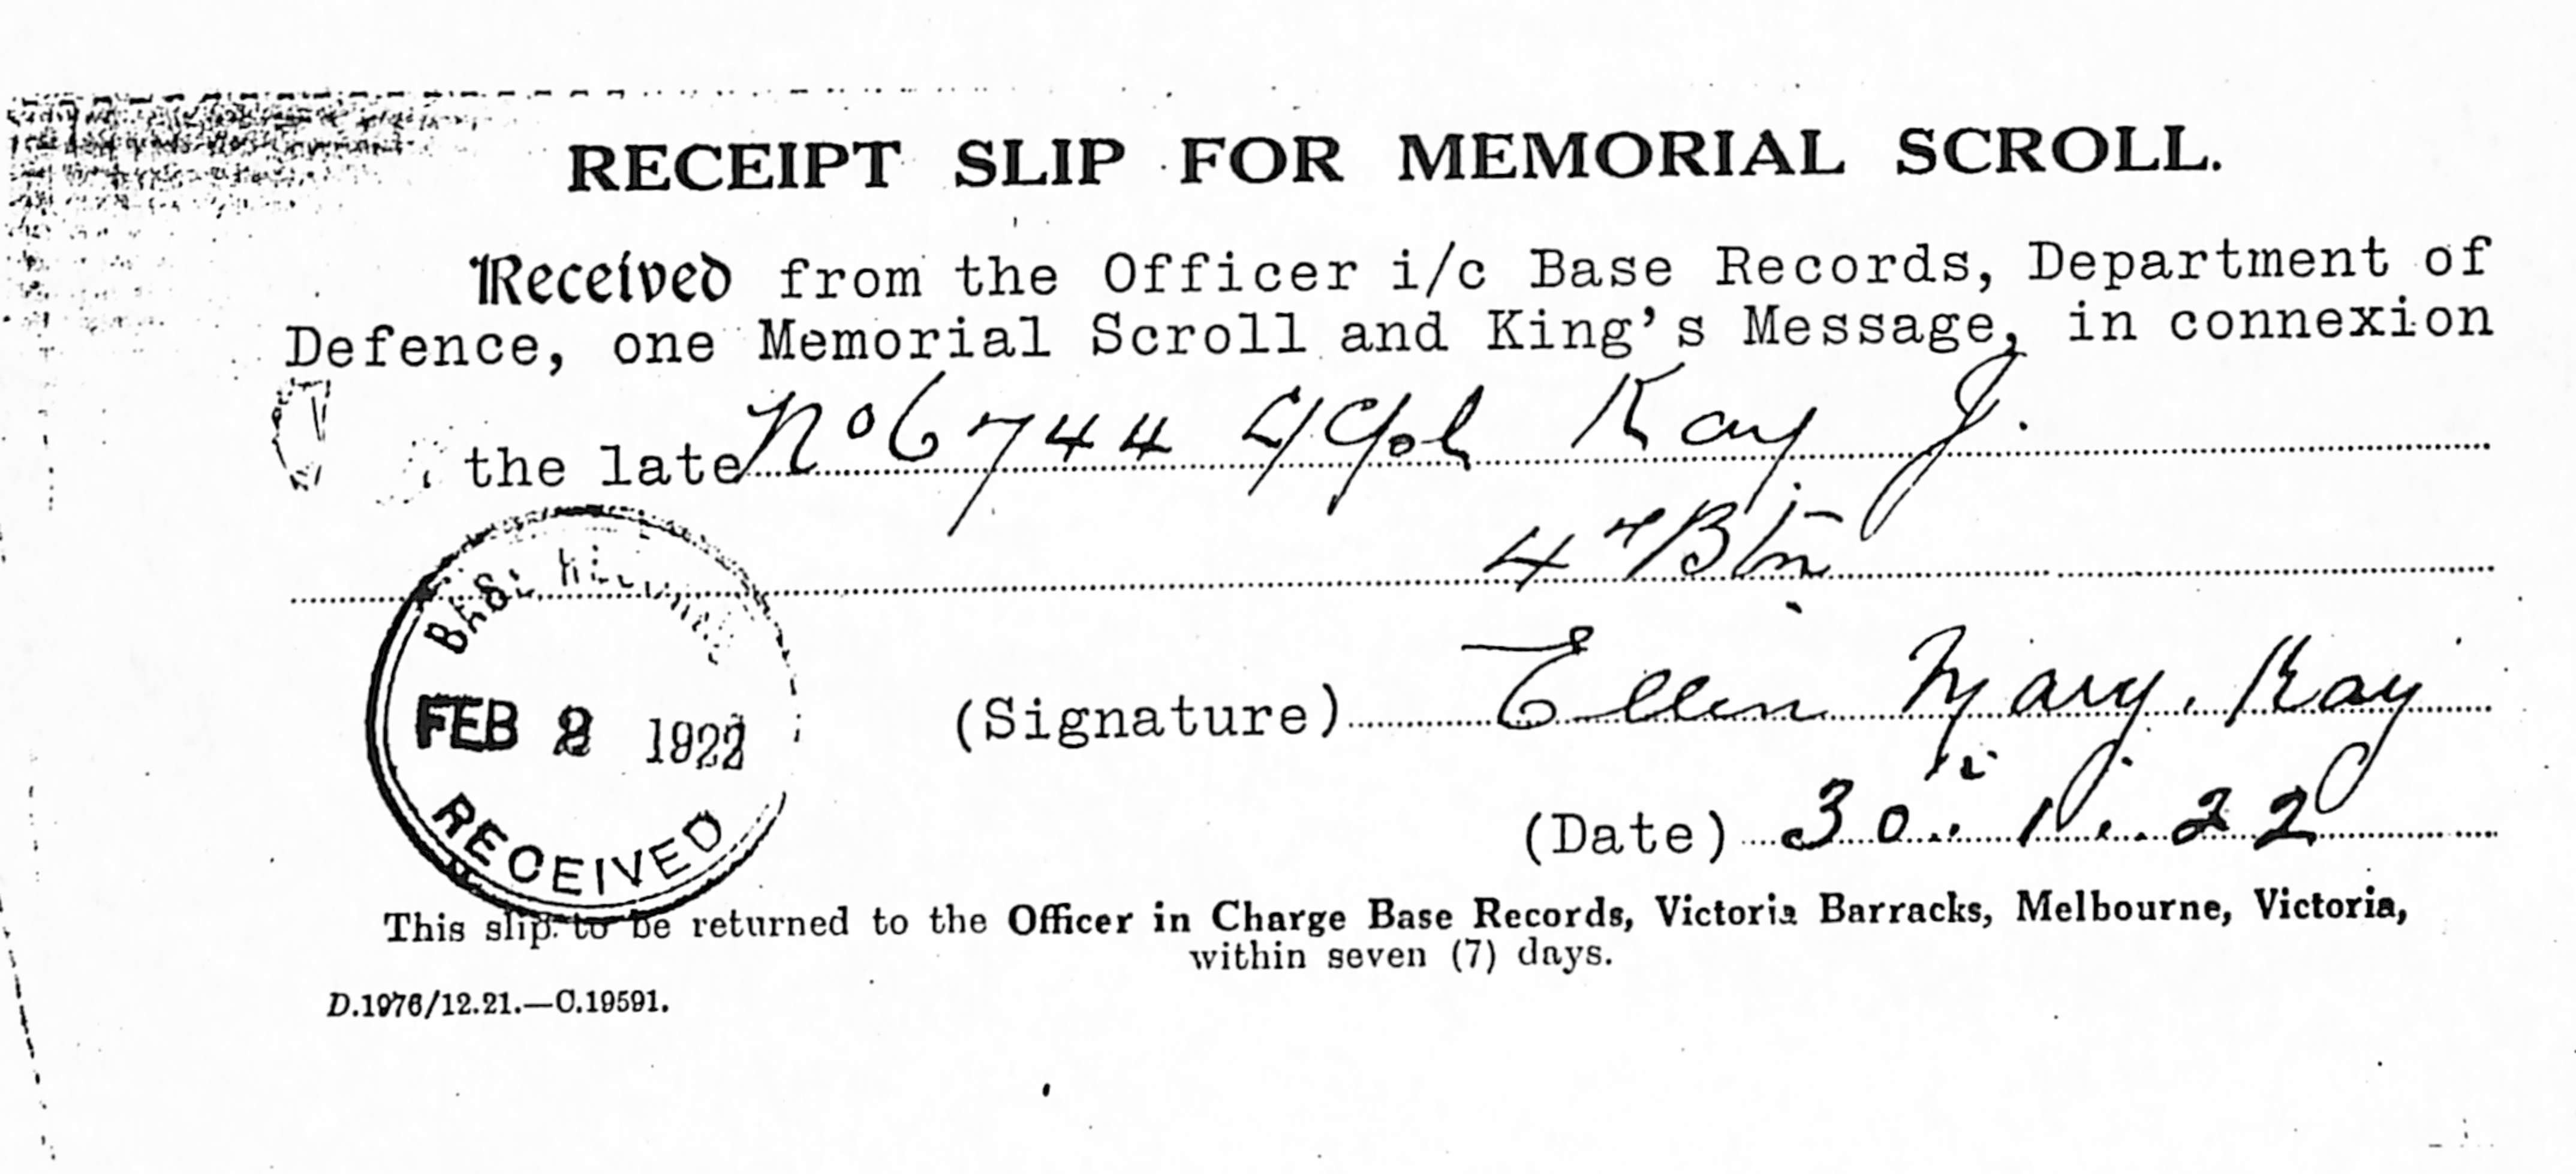 RECEIPT SLIP FOR MEMORIAL SCROLL.
Received from the Officer i/c Base Records, Department of
Defence, one Memorial Scroll and King's Message, in connexion
the late No 6744 L/Cpl Kay J.
4th Btn
BASE
FEB 2 1922
RECEIVED
(Signature) Ellen Mary. Kay
(Date) 30. 1. 22
This slip to be returned to the Officer in Charge Base Records, Victoria Barracks, Melbourne, Victoria,
within seven (7) days.
D.1976/12.21.—C.19591.